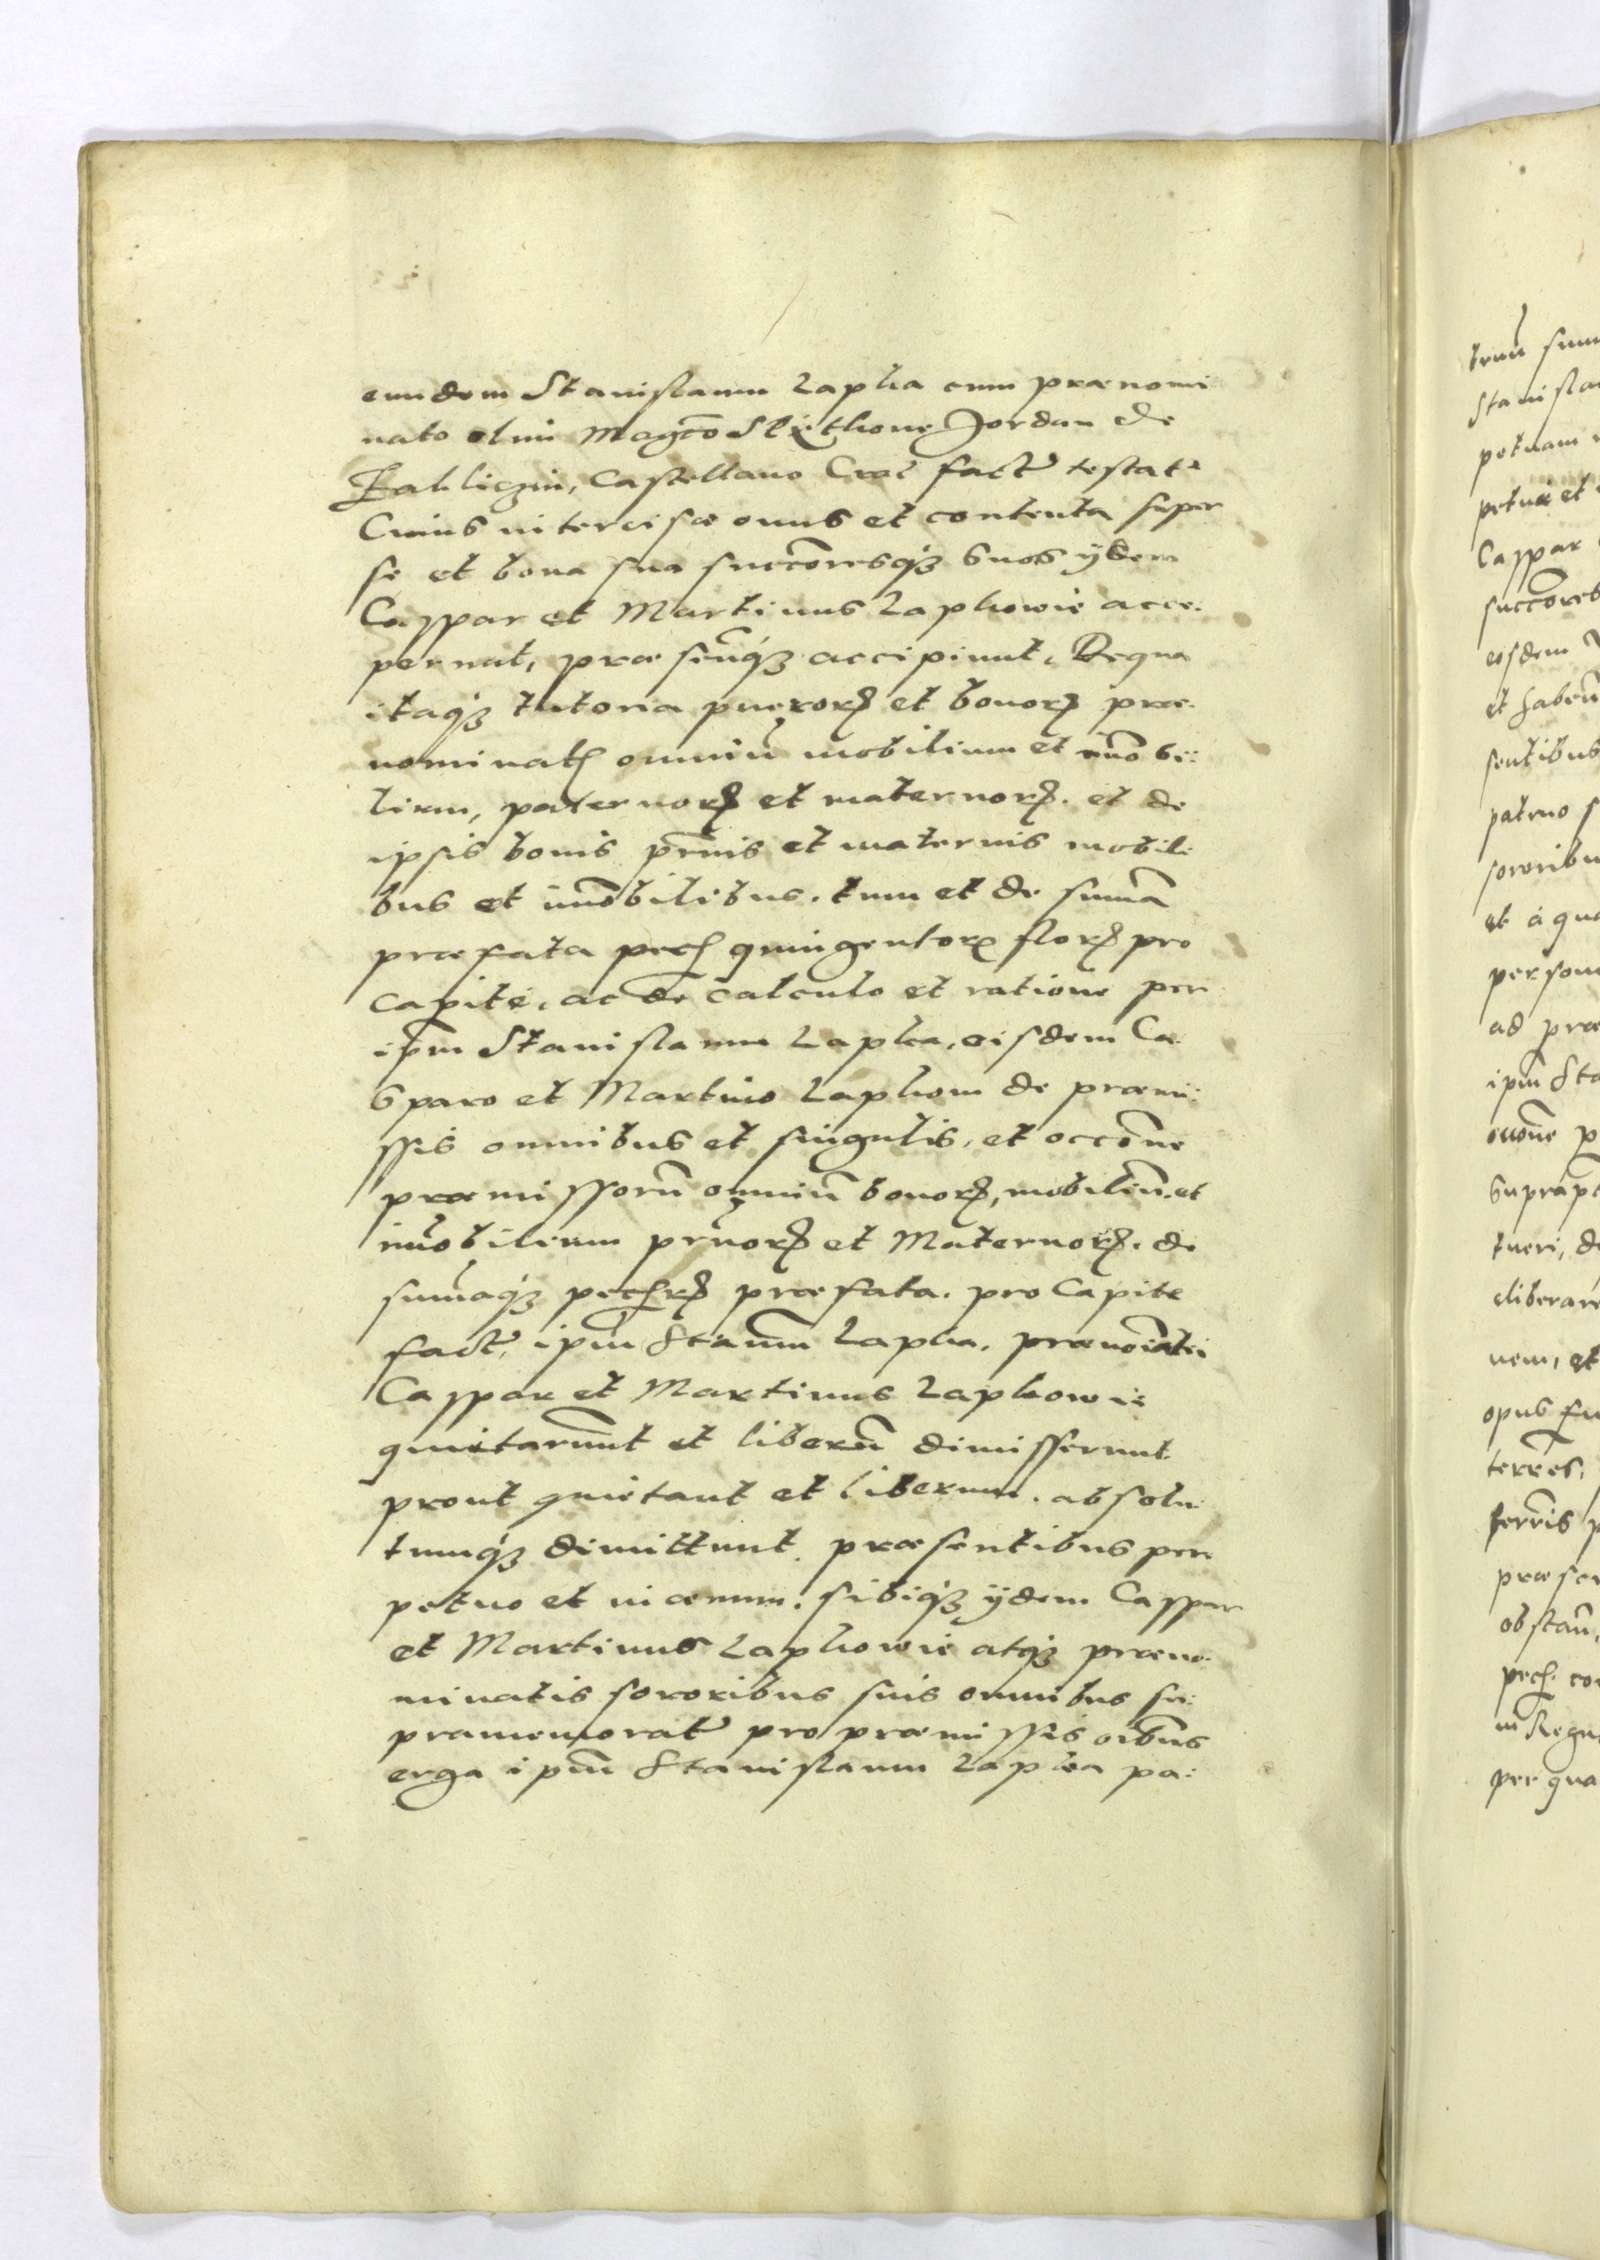 eundem Stanislaum Lapka cum prænomi
nato olim Magco Spithone Jordan de
Zakliczin, Castellano Crac factū testat
Cuius intercisæ onus et contenta super
se et bona sua succōresq3 suos ÿdem
Caspar et Martinus Lapkowie acce:
perunt, præsēnq3 accipiunt, De qua
itaq3 tutoria pueroꝝ et bonoꝝ præ:
nominatꝭ omniū mobilium et imōbi:
lium, paternoꝝ et maternoꝝ. et de
ipsis bonis pr̄nis et maternis mobili
bus et imōbilibus. tum et de summā
præfata pecꝭ quingentoꝝ floꝝ pro
capite, ac de calculo et ratione per
ipm̄ Stanislaum Lapka, eisdem Ca
sparo et Martino Lapkom de præmi:
ssis omnibus et singulis, et occōne
præmissorū omniū bonoꝝ, mobiliū et
imōbilium pr̄noꝝ et Maternoꝝ. de
sum̄aq3 pecꝝ præfata. pro Capite
factꝭ, ipm̄ Stanm̄ Lapka. prænōiati
Caspar et Martinus Lapkowie
quietarunt et liberū dimisserunt
prout quietant et liberum. absolu
tumq3 dimittunt præsentibus per
petuo et in ævum. sibiq3 ÿdem Caspar
et Martinus Lapkowie atq3 præno:
minatis sororibus suis omnibus su:
pramemoratꝭ pro præmissis oībus
erga ipm̄ Stanislaum Lapka pa: